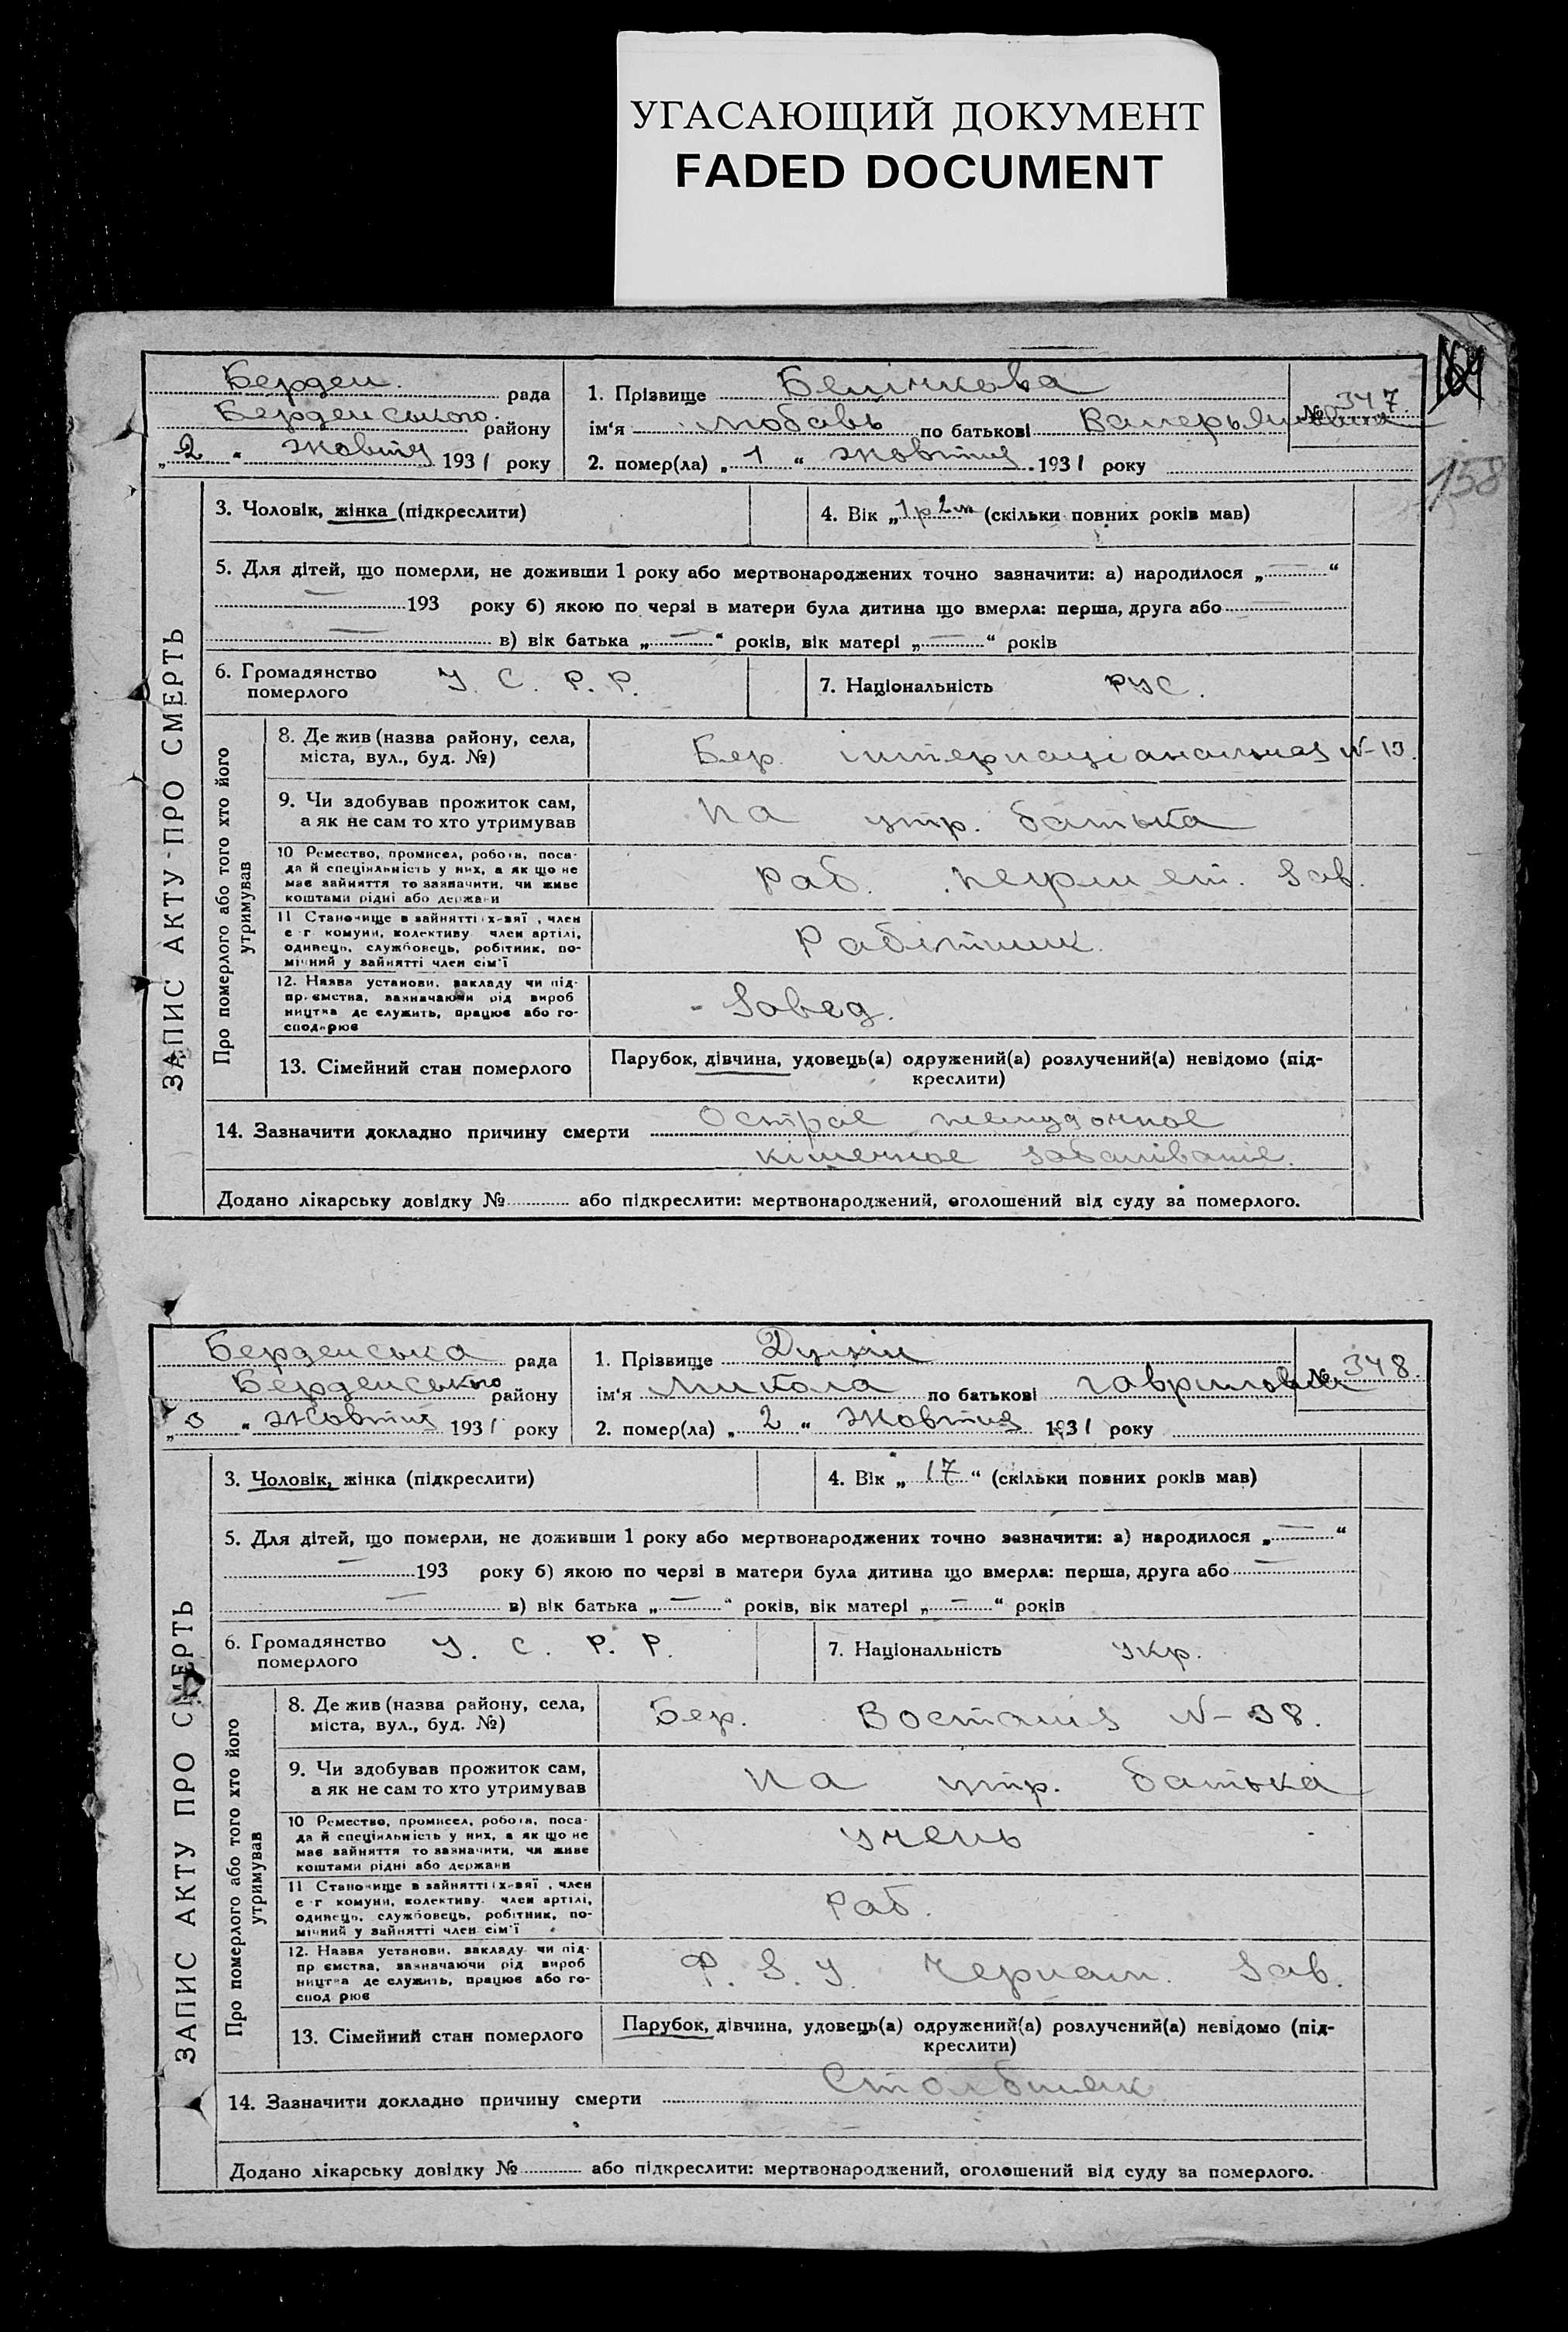 УГАСАЮЩИЙ ДОКУМЕНТ
FADED DOCUMENT
164
158
Берден. рада
Берденського. району
„2“ жовтня 1931 року
1. Прізвище Белічкова
ім‘я Любовь по батькові Валерьяновна
№ 347.
2. помер(ла) „1“ жовтня 1931 року
ЗАПИС АКТУ ПРО СМЕРТЬ
3. Чоловік, жінка (підкреслити)
4. Вік „1р 2м (скільки повних років мав)
5. Для дітей, що померли, не доживши 1 року або мертвонароджених точно зазначити: а) народилося „—“
— 193 року б) якою по черзі в матери була дитина що вмерла: перша, друга або —
— в) вік батька „—“ років, вік матері „—“ років
6. Громадянство померлого У. С. Р. Р.
7. Національність рус.
Про померлого або того хто його утримував
8. Де жив (назва району, села,
міста, вул., буд. №)
Бер. інтернаціанальная №-13.
9. Чи здобував прожиток сам,
а як не сам то хто утримував
на утр. батька
10 Ремество, промисел, робота, поса-
да й спеціяльність у них, а як що не
має зайняття то зазначити, чи живе
коштами рідні або держави
Раб. Зав.
11 Становище в зайнятті , член
с-г комуни, колективу член артілі,
одинець, службовець, робітник, по-
мічний у зайнятті член сім'ї
Рабітник.
12. Назва установи, закладу чи під-
приємства, зазначаючи рід вироб
ництва де служить, працює або го-
сподарює
- Завед.
13. Сімейний стан померлого
Парубок, дівчина, удовець(а) одружений(а) розлучений(а) невідомо (під-
креслити)
14. Зазначити докладно причину смерти Острае желудочное
кішечное забаліваніе.
Додано лікарську довідку № або підкреслити: мертвонароджений, оголошений від суду за померлого.
Берденська рада
Берденського району
„3“ жовтня 1931 року
1. Прізвище
ім‘я Микола по батькові Гаврилович
№ 348.
2. помер(ла) „2“ жовтня 1931 року
ЗАПИС АКТУ ПРО СМЕРТЬ
3. Чоловік, жінка (підкреслити)
4. Вік „17“ (скільки повних років мав)
5. Для дітей, що померли, не доживши 1 року або мертвонароджених точно зазначити: а) народилося „—“
— 193 року б) якою по черзі в матери була дитина що вмерла: перша, друга або —
— в) вік батька „—“ років, вік матері „—“ років
6. Громадянство померлого У. С. Р. Р.
7. Національність укр.
Про померлого або того хто його утримував
8. Де жив (назва району, села,
міста, вул., буд. №)
Бер. Востания №-38.
9. Чи здобував прожиток сам,
а як не сам то хто утримував
на утр. батька
10 Ремество, промисел, робота, поса-
да й спеціяльність у них, а як що не
має зайняття то зазначити, чи живе
коштами рідні або держави
учень
11 Становище в зайнятті , член
с-г комуни, колективу член артілі,
одинець, службовець, робітник, по-
мічний у зайнятті член сім'ї
Раб.
12. Назва установи, закладу чи під-
приємства, зазначаючи рід вироб
ництва де служить, працює або го-
сподарює
Ф. З. У. Зав.
13. Сімейний стан померлого
Парубок, дівчина, удовець(а) одружений(а) розлучений(а) невідомо (під-
креслити)
14. Зазначити докладно причину смерти Столбняк
Додано лікарську довідку № або підкреслити: мертвонароджений, оголошений від суду за померлого.